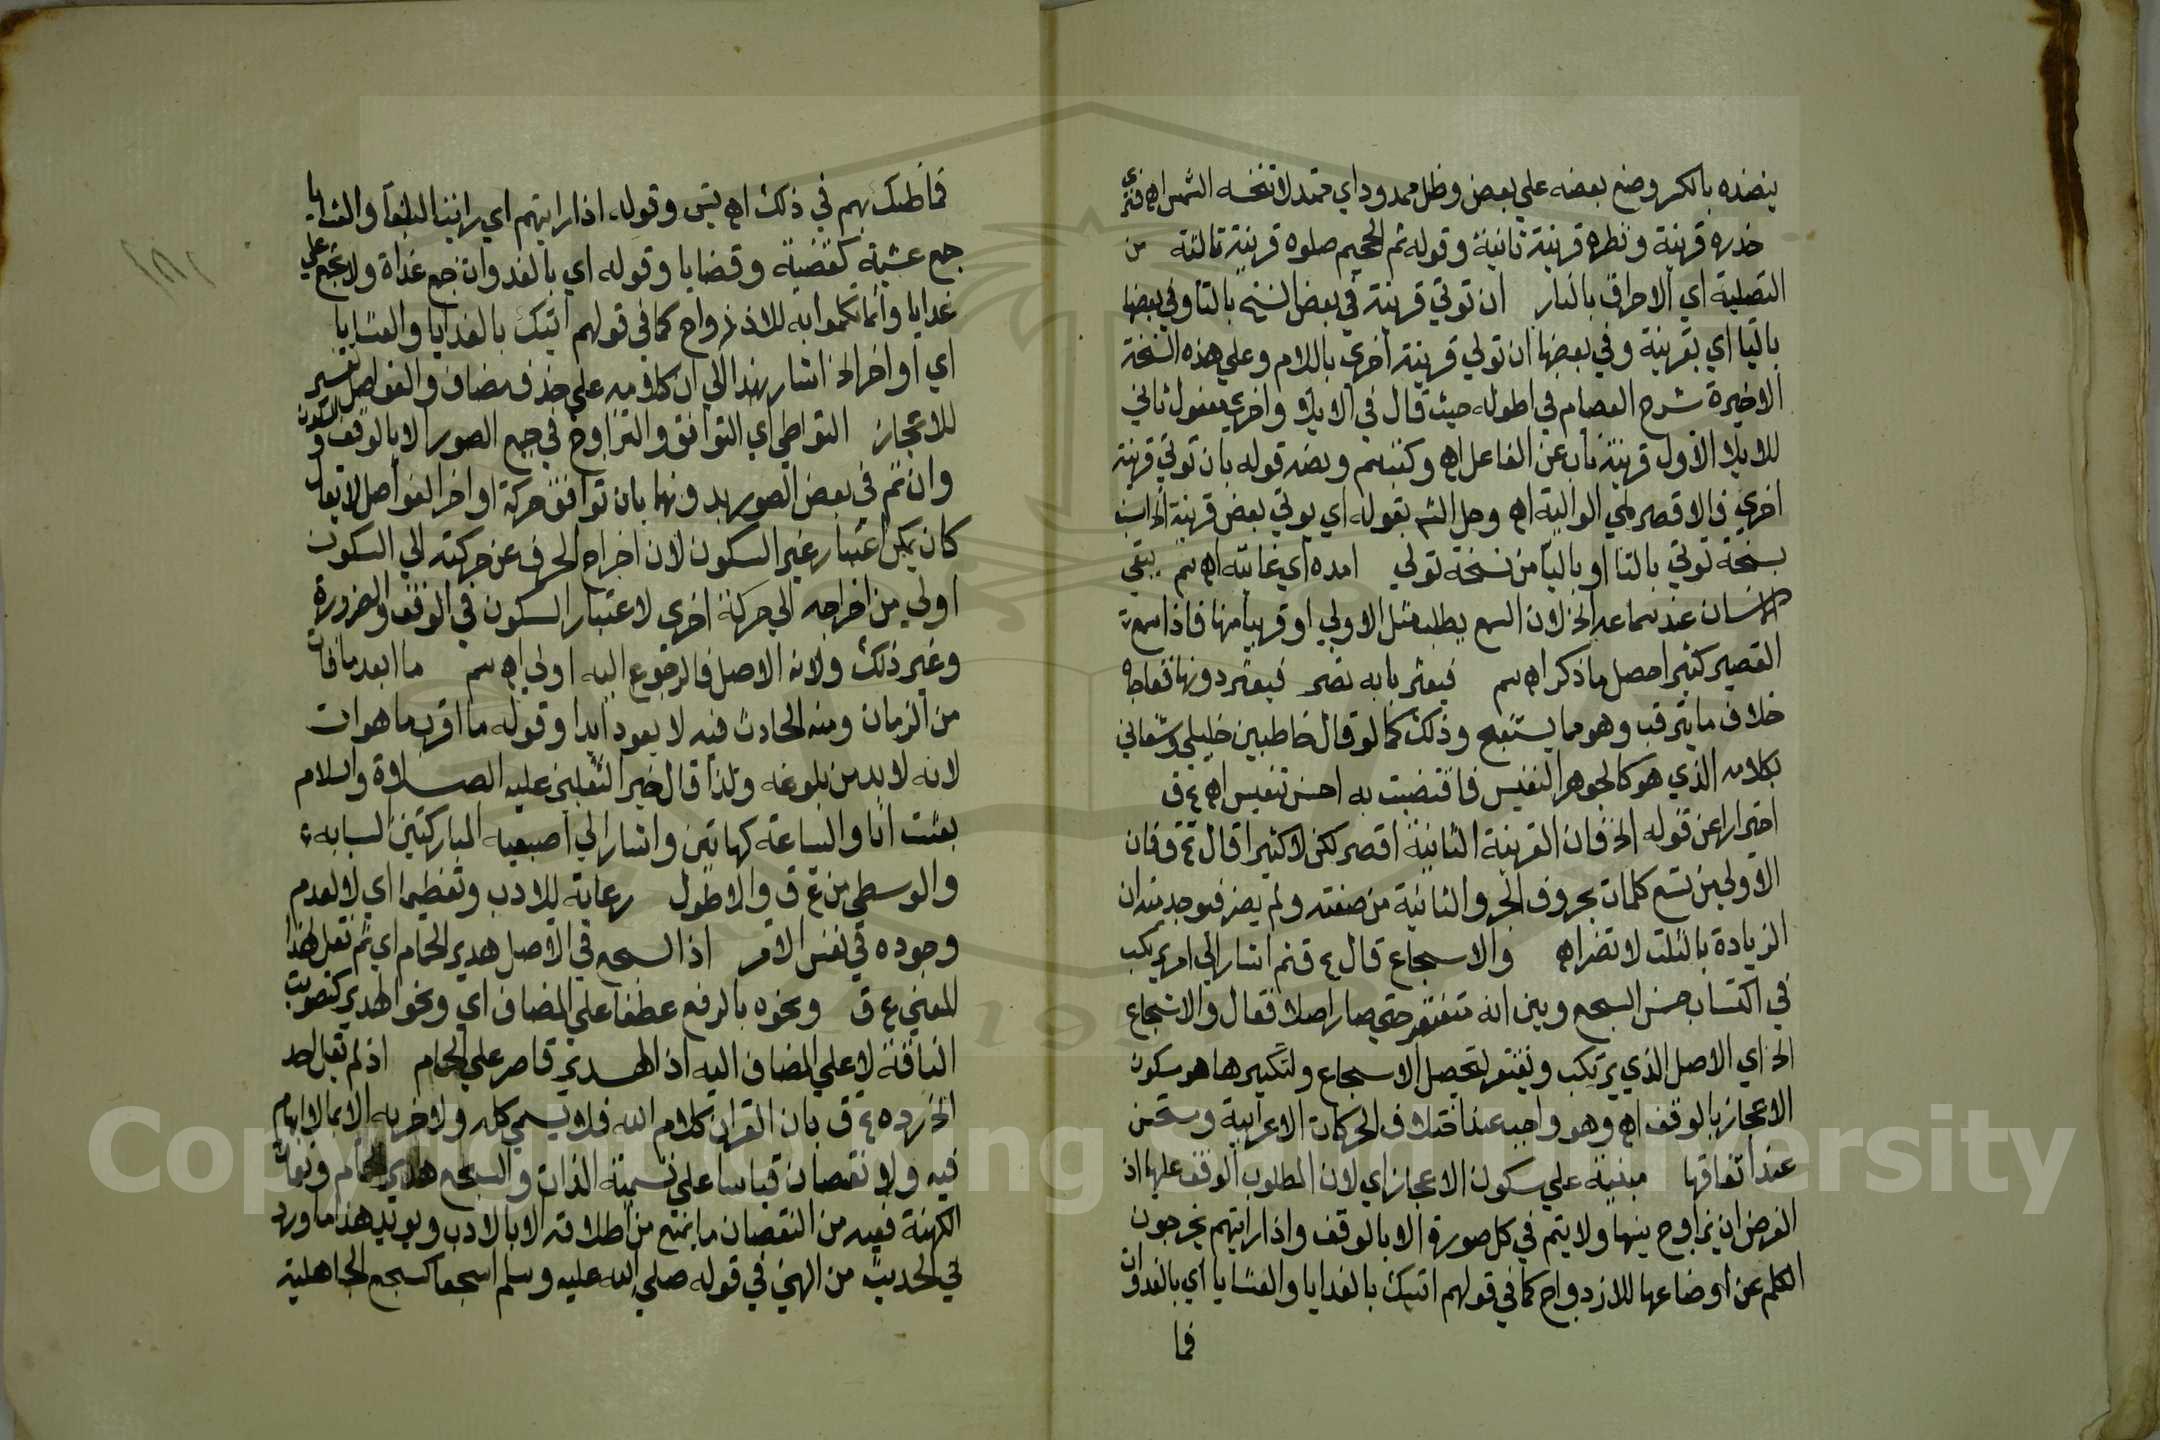 ينضده بالكسر وضع بعضه علي بعض وظل ممدود اي ممتد لا تنخسه الشمس اه فنري
خذره قرينة ونظره قرينة ثانية وقوله ثم الجحيم صلوه قرينة ثالثة من
التصلية اي الاحراق بالنار ان توتي قرينة في بعض النسخ بالتا وفي بعضها
باليا اي بقرينة وفي بعضها ان تولي قرينة اخري باللام وعلي هذه النسخة
الاخيرة شرح العصام في اطوله حيث قال في الايلا واخري مفعول ثاني
للايلا الاول قرينة ناب عن الفاعل اه وكتب سم ونصه قوله بان توتي قرينة
اخري في الاقصر لمي الوالية اه وحل الشم بقوله اي يوتي بعض قرينة الخ انسب
بنسخة توتي بالتا او باليا من نسخة تولي امده اي غايته اه سم يبقي
الانسان عند سماعه الخ لان السمع يطلب مثل الاولي او قريبا منها فاذا سمع
القصير كثيرا حصل ما ذكر اه سم فيعثر بابه نصر فيعثر دونها ففاجاه
خلاف ما يترقب وهو مما يستقبح وذلك كما لو قال خاطبين خليلي وشفاني
بكلامه الذي هو كالجوهر النفيس فاقتضبت به احسن تنفيس اه ع ق
احترازا عن قوله الخ فان القرينة الثانية اقصر لكن لا كثيرا قال ع ق فان
الاولي من تسع كلمات بحروف الجر والثانية من ستة ولم يضر فيوجد منه ان
الزيادة بالثلث لا تضر اه والاسجاع قال ع ق ثم اشار الي امر يرتكب
في اكتساب حسن السجع وبين انه مغتفر حتي صار اصلا فقال والاسجاع
الخ اي الاصل الذي يرتكب ويغتفر لتحصيل الاسجاع ولتكثيرها هو سكون
الاعجاز بالوقف اه وهو واجب عند اختلاف الحركات الاعرابية ومستحسن
عند اتفاقها مبنية علي سكون الاعجاز اي لان المطلوب الوقف عليها اذ
الغرض ان يزاوج بينها ولا يتم في كل صورة الا بالوقف واذا رايتهم يخرجون
الكلم عن اوضاعها للازدواج كما في قولهم اتيتك بالغدايا والعشايا اي بالغدوات
فما
فما ظنك بهم في ذلك اه يس وقوله اذا رايتهم اي راينا البلغا والعشايا
جمع عشية كقضية وقضايا وقوله اي بالغدوات جمع غداة ولا تجمع علي
غدايا وانما تكلموا به للازدواج كما في قولهم اتيتك بالغدايا والعشايا
اي اواخر الخ اشار بهذا الي ان كلامه علي حذف مضاف والفواصل تفسير
للاعجاز التواطي اي التوافق والتزاوج في جميع الصور الا بالوقف والسكون
وان تم في بعض الصور بدونها بان توافق حركة اواخر الفواصل لا يقال
كان يمكن اعتبار غير السكون لان اخراج الحرف عن حركته الي السكون
اولي من اخراجه الي حركة اخري لاعتبار السكون في الوقف والضرورة
وغير ذلك ولانه الاصل فالرجوع اليه اولي اه سم ما ابعد ما فات
من الزمان ومنه الحادث فيه لا يعود ابدا وقوله ما اقرب ما هو ات
لانه لا بد من بلوغه ولذا قال خير الثقلين عليه الصلاة والسلام
بعثت انا والساعة كهاتين واشار الي اصبعيه المباركتين السبابه
والوسطي من ع ق والاطول رعاية للادب وتعظيما اي لا لعدم
وجوده في نفس الامر اذ السجع في الاصل هدير الحمام اي ثم نقل لهذا
المعني ع ق ونحوه بالرفع عطفا علي المضاف اي ونحو الهدير كتصويت
الناقة لا علي المضاف اليه اذ الهدير قاصر علي الحمام اذ لم نقل احد
الخ رده ع ق بان القران كلام الله فلا يسمي كله ولا جزء به الا بما لا ايهام
فيه ولا نقصان قياسا علي تسمية الذات والسجع هدير الحمام ونغمات
الكهنة ففيه من النقصان ما يمنع من اطلاقه الا بالادب ويويد هذا ما ورد
في الحديث من النهي في قوله صلي الله عليه وسلم اسجعا كسجع الجاهلية
١٨١
Copyright © King Saud University
1957